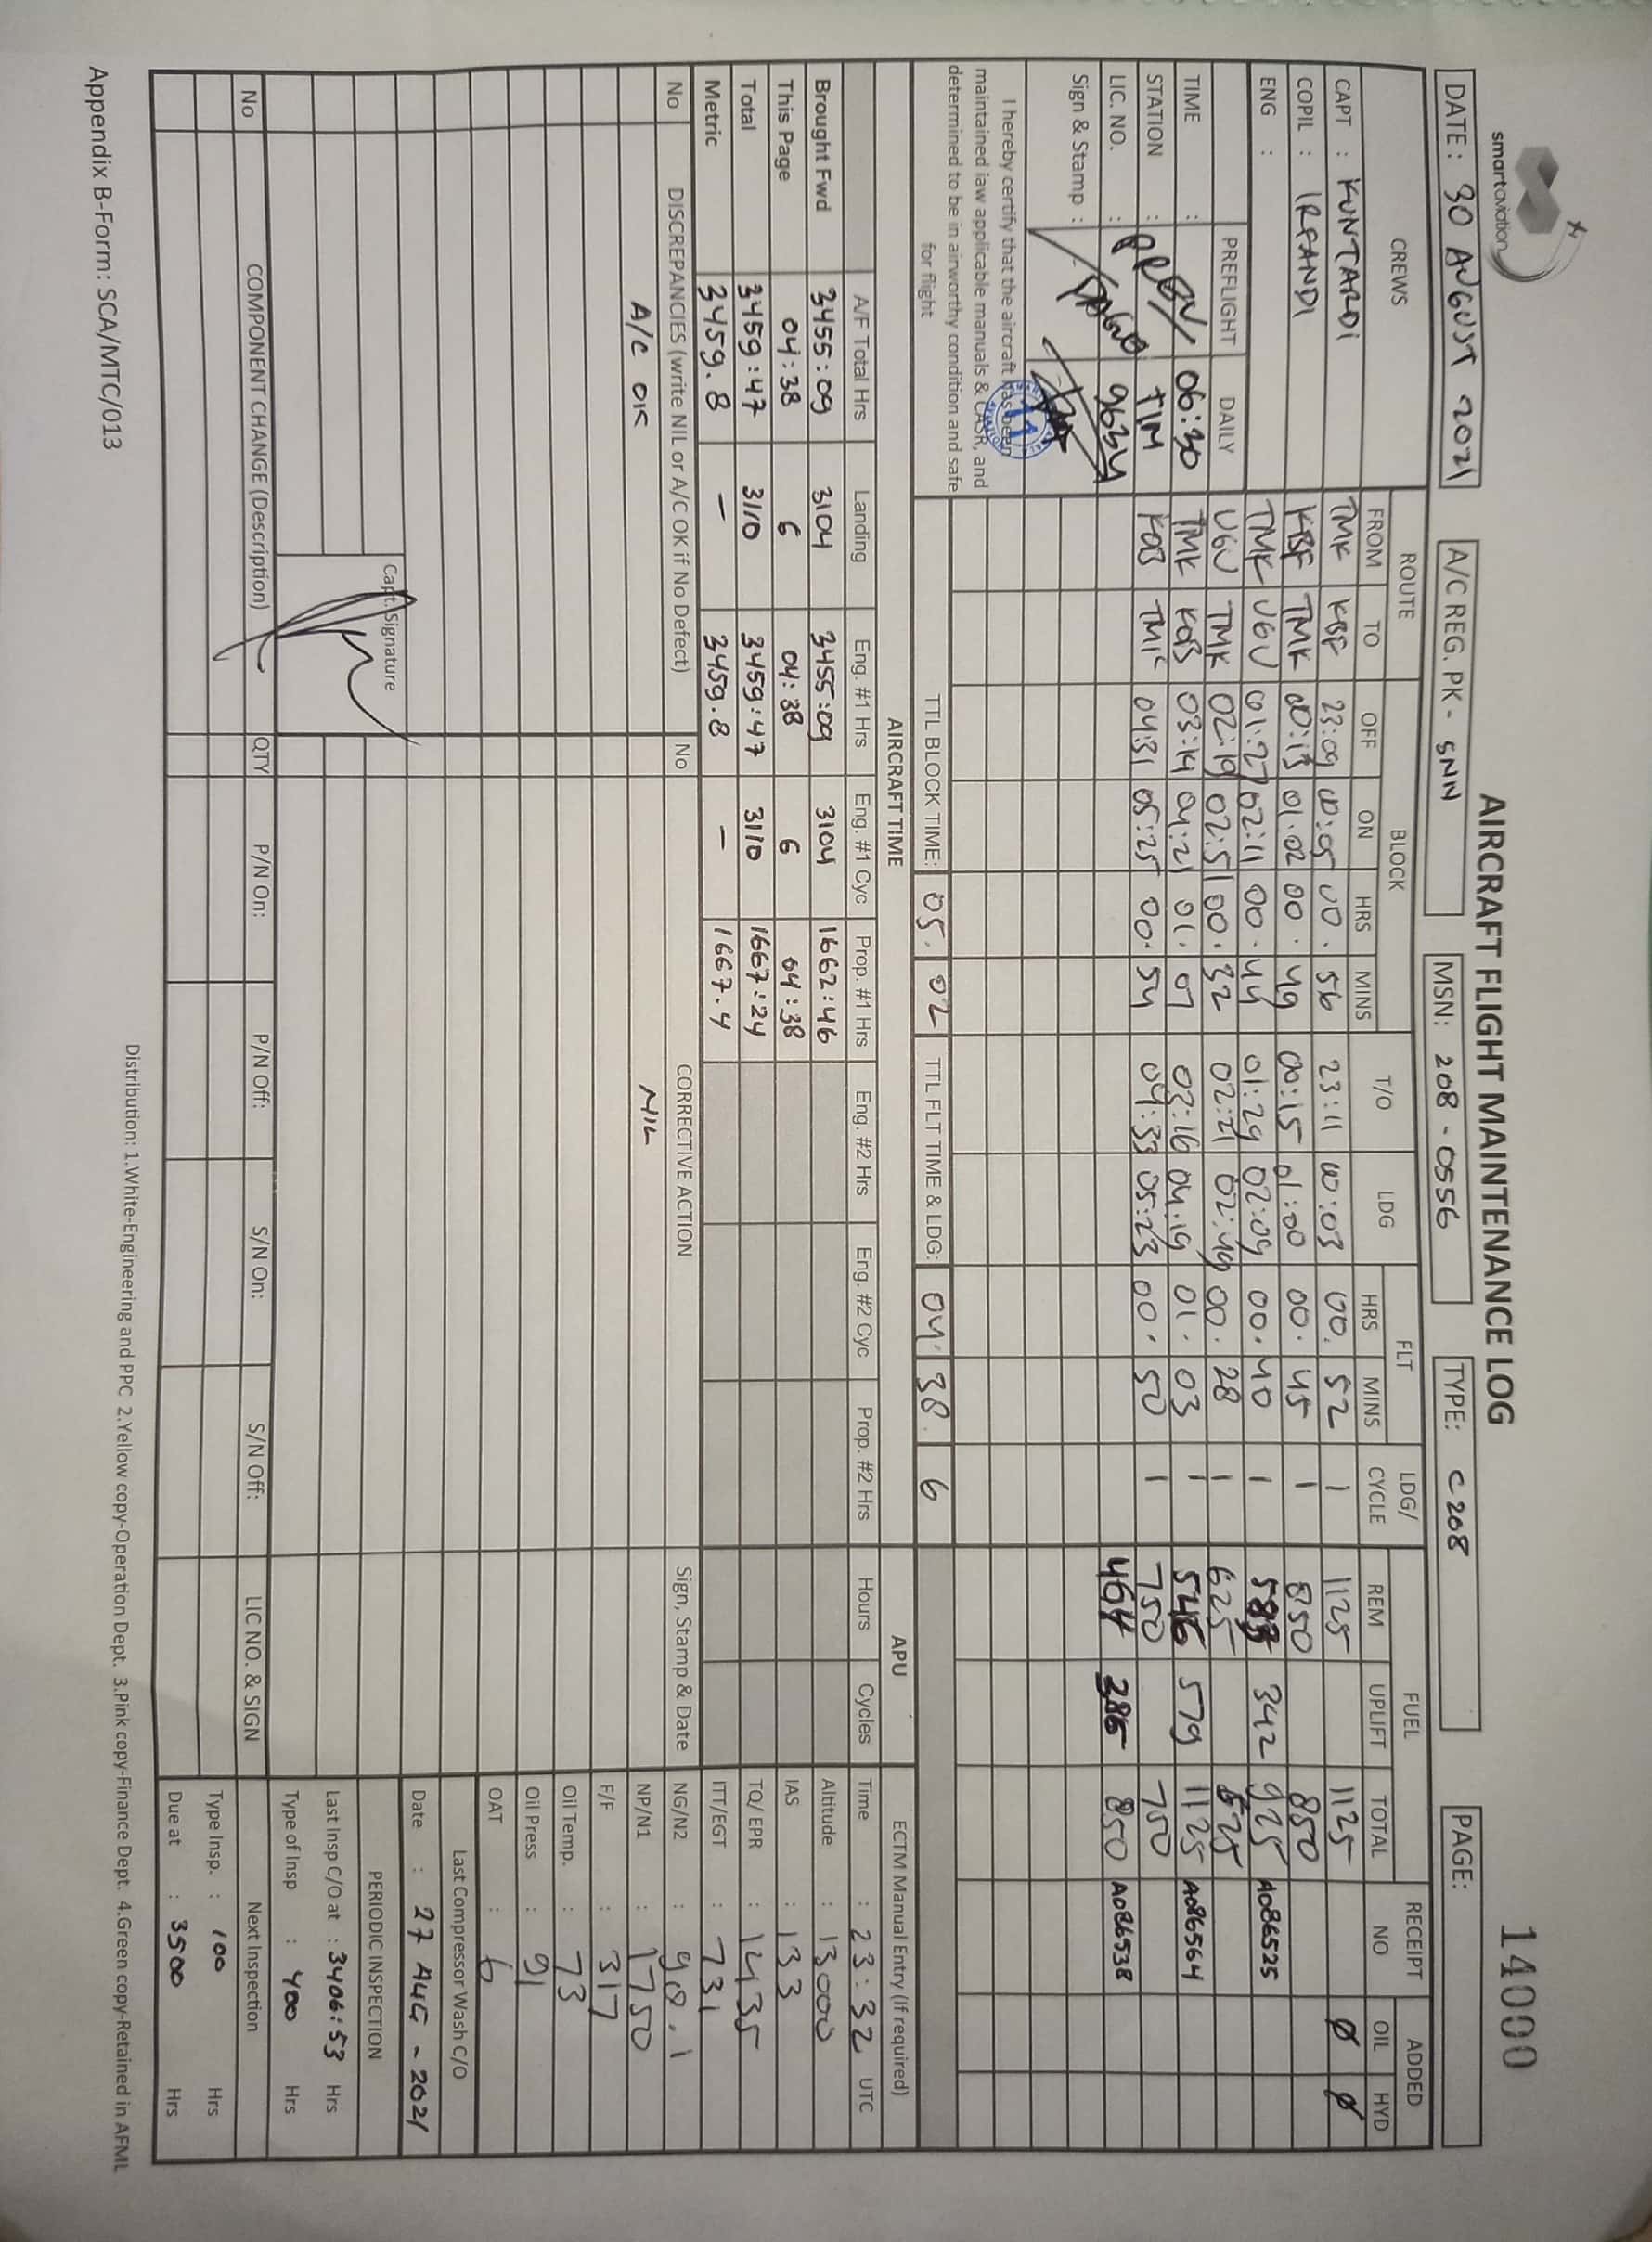 smartaviation
AIRCRAFT FLIGHT MAINTENANCE LOG
14000
DATE : 30 AUGUST 2021 A/C REG. PK- SNN MSN: 208-0556 TYPE: C208 PAGE:
CREWS ROUTE BLOCK T/O LDG FLT LDG/ CYCLE FUEL RECEIPT NO ADDED
FROM TO OFF ON HRS MINS HRS MINS REM UPLIFT TOTAL OIL HYD
CAPT : KUNTARDI TMK KBF 23:09 00:05 00. 56 23:11 00:03 00. 52 1 1125 1125 Ø Ø
COPIL : IRFANDI KBF TMK 00:13 01:02 00. 49 00:15 01:00 00. 45 1 850 850
ENG : TMK UGU 01:27 02:11 00. 44 01:29 02:09 00. 40 1 342 925 A086525
PREFLIGHT DAILY UGU TMK 02:19 02:51 00. 32 02:21 02:49 00. 28 1 625 625
TIME : 06:30 TMK KOB 03:14 04:21 01. 07 03:16 04:19 01. 03 1 546 579 1125 A086564
STATION : TIM KOB TMK 04:31 05:25 00. 54 04:33 05:23 00. 50 1 750 750
LIC. NO. : 9634 464 386 850 A086538
Sign & Stamp :
I hereby certify that the aircraft has been
maintained iaw applicable manuals & CASR, and
determined to be in airworthy condition and safe
for flight
TTL BLOCK TIME: 05. 02 TTL FLT TIME & LDG: 04. 38. 6
AIRCRAFT TIME APU ECTM Manual Entry (If required)
A/F Total Hrs Landing Eng. #1 Hrs Eng. #1 Cyc Prop. #1 Hrs Eng. #2 Hrs Eng. #2 Cyc Prop. #2 Hrs Hours Cycles Time : 23:32 UTC
Brought Fwd 3455:09 3104 3455:09 3104 1662:46 Altitude : 13000
This Page 04:38 6 04:38 6 04:38 IAS : 133
Total 3459:47 3110 3459:47 3110 1667:24 TQ/ EPR : 1435
Metric 3459.8 — 3459.8 — 1667.4 ITT/EGT : 731
No DISCREPANCIES (write NIL or A/C OK if No Defect) No CORRECTIVE ACTION Sign, Stamp & Date NG/N2 : 98.1
A/C OK NIL NP/N1 : 1750
F/F : 317
Oil Temp. : 73
Oil Press : 91
OAT : 6
Last Compressor Wash C/O
Capt. Signature Date : 27 AUG - 2021
PERIODIC INSPECTION
Last Insp C/O at : 3406:53 Hrs
Type of Insp : 400 Hrs
No COMPONENT CHANGE (Description) QTY P/N On: P/N Off: S/N On: S/N Off: LIC NO. & SIGN Next Inspection
Type Insp. : 100 Hrs
Due at : 3500 Hrs
Distribution: 1.White-Engineering and PPC 2.Yellow copy-Operation Dept. 3.Pink copy-Finance Dept. 4.Green copy-Retained in AFML
Appendix B-Form: SCA/MTC/013